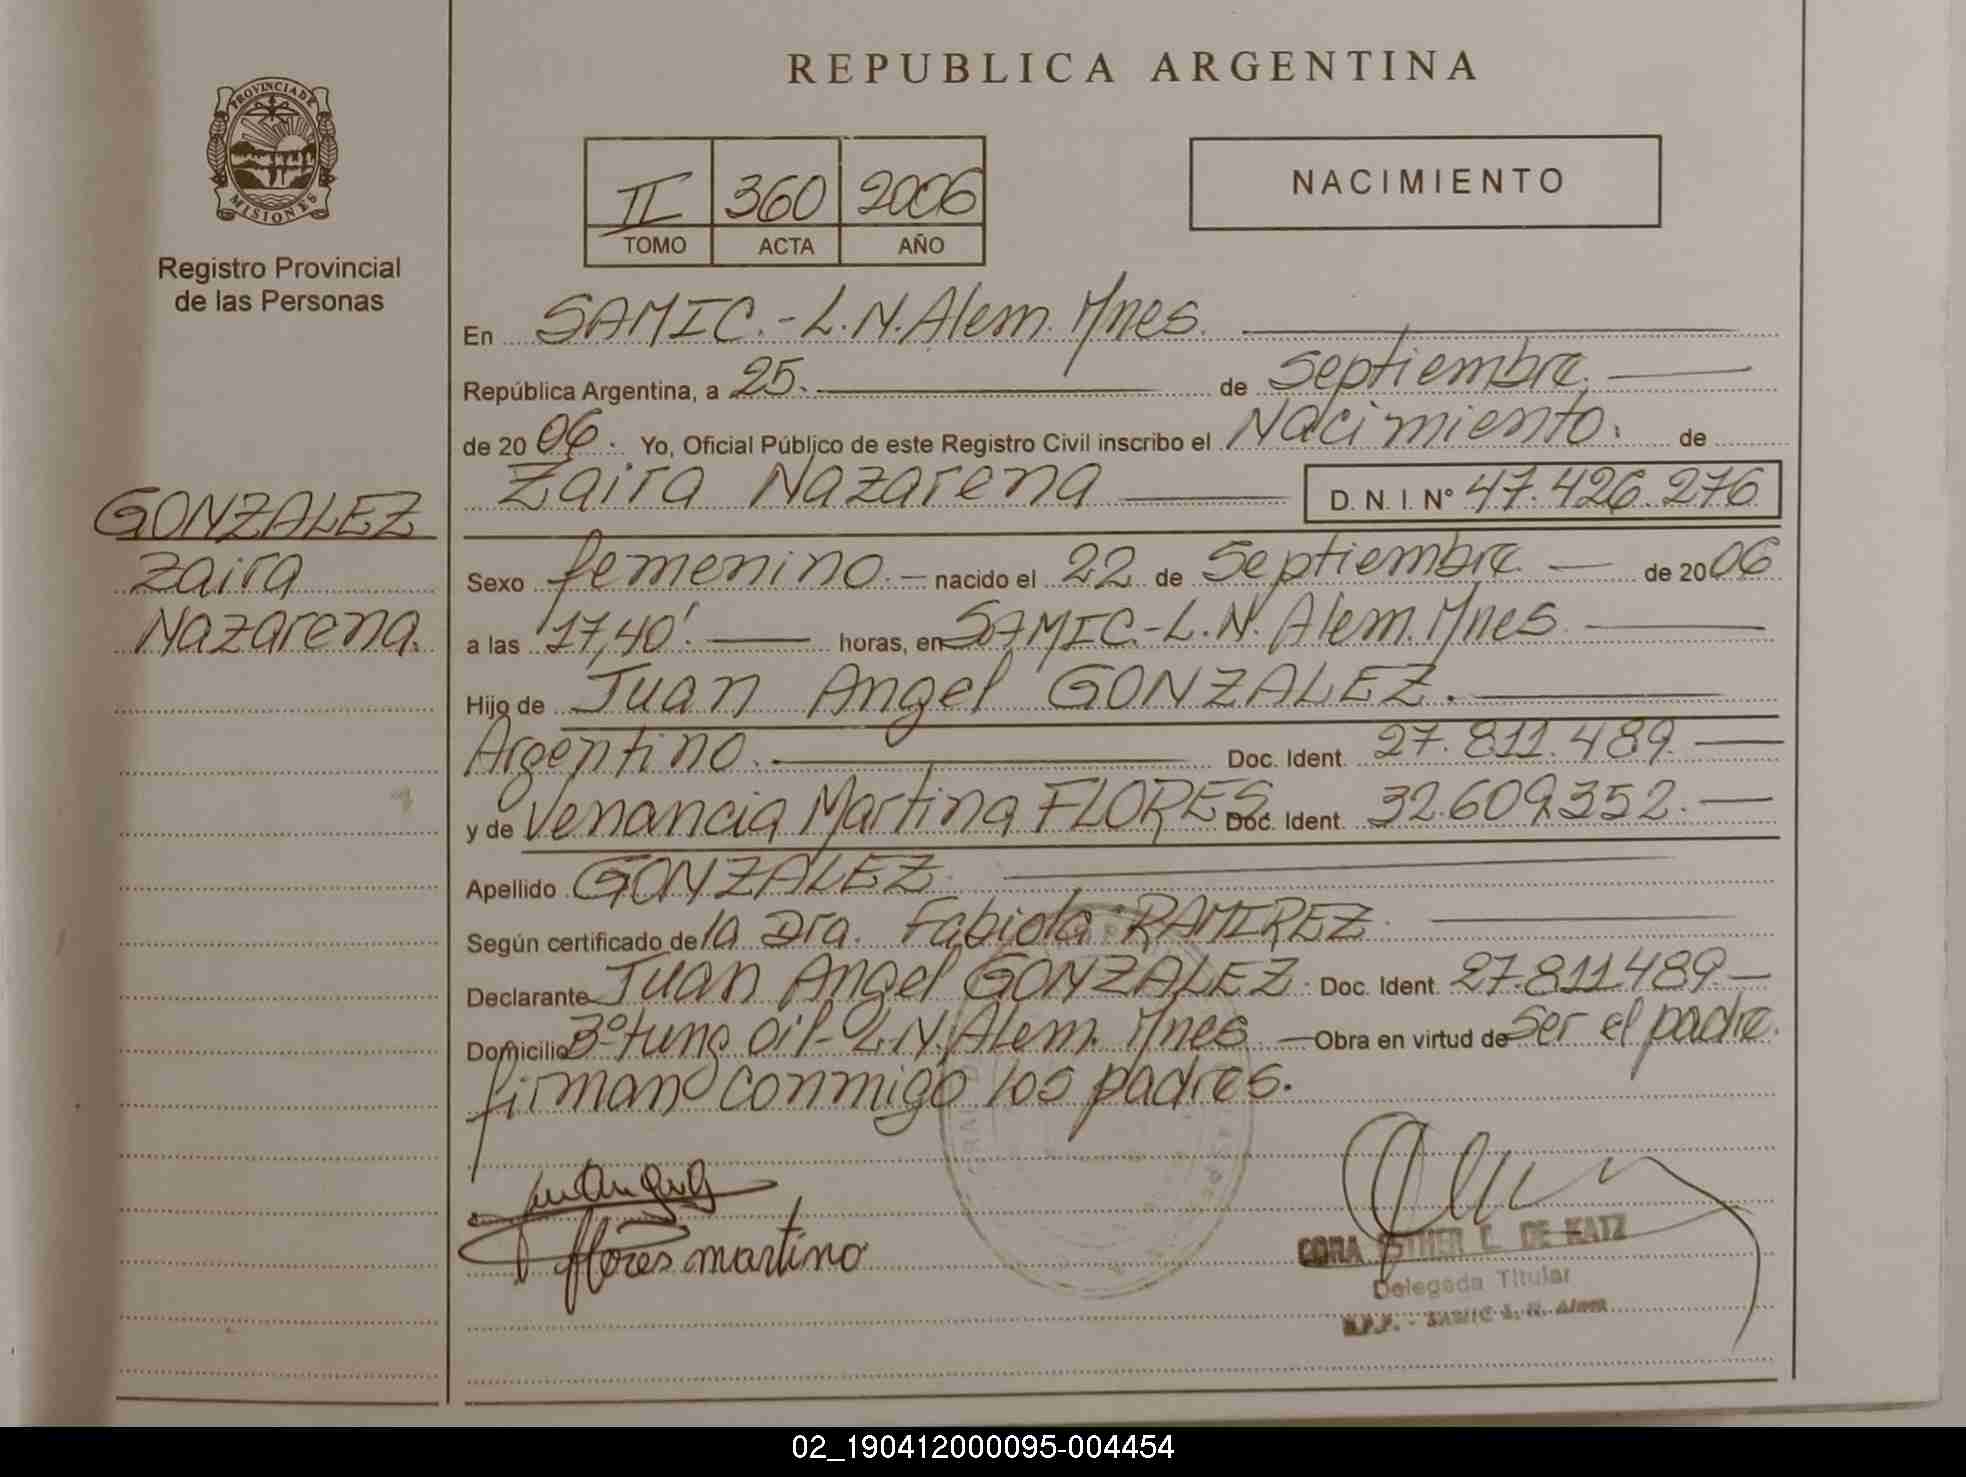 REPUBLICA ARGENTINA
PROVINCIA DE
MISIONES
Registro Provincial
de las Personas
II 360 2006
TOMO ACTA AÑO
NACIMIENTO
En SAMIC.-L.N.Alem.Mnes.
República Argentina, a 25. de Septiembre.
de 2006. Yo, Oficial Público de este Registro Civil inscribo el Nacimiento. de
Zaira Nazarena D. N. I. N° 47.426.276
GONZALEZ
Zaira
Nazarena.
Sexo femenino.- nacido el 22 de Septiembre de 2006
a las 17,40'. horas, en SAMIC.-L.N. Alem. Mnes.
Hijo de Juan Angel GONZALEZ.
Argentino. Doc. Ident. 27.811.489.
y de Venancia Martina FLORES Doc. Ident. 32.609.352.
Apellido GONZALEZ.
Según certificado de la Dra. Fabiola RAMIREZ.
Declarante Juan Angel GONZALEZ. Doc. Ident. 27.811.489.-
Domicilio B° tung oil- L.N.Alem. Mnes. Obra en virtud de Ser el padre.
firman conmigo los padres.
flores martina
CORA ESTHER C. DE KATZ
Delegada Titular
R.P.P. - SAMIC L. N. Alem
02_190412000095-004454